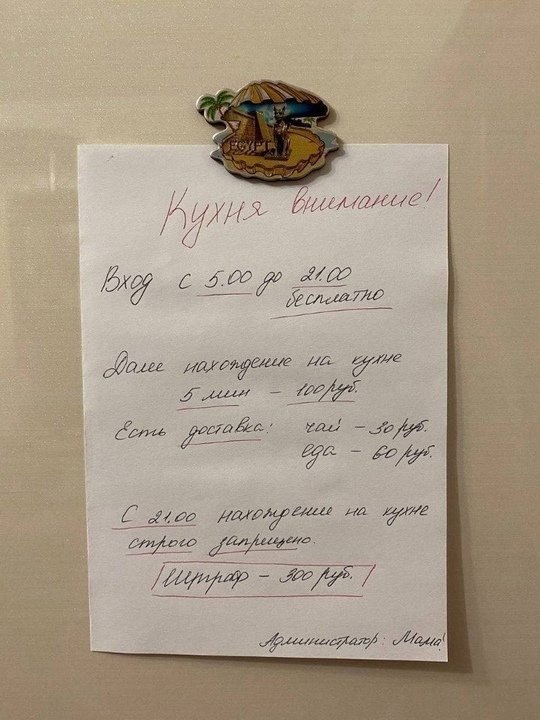 EGYPT
Кухня внимание!
Вход с 5.00 до 21.00
бесплатно
Далее нахождение на кухне
5 мин – 100 руб.
Есть доставка: чай – 30 руб.
еда – 60 руб.
С 21.00 нахождение на кухне
строго запрещено.
Штраф – 300 руб.
Администратор: Мама!